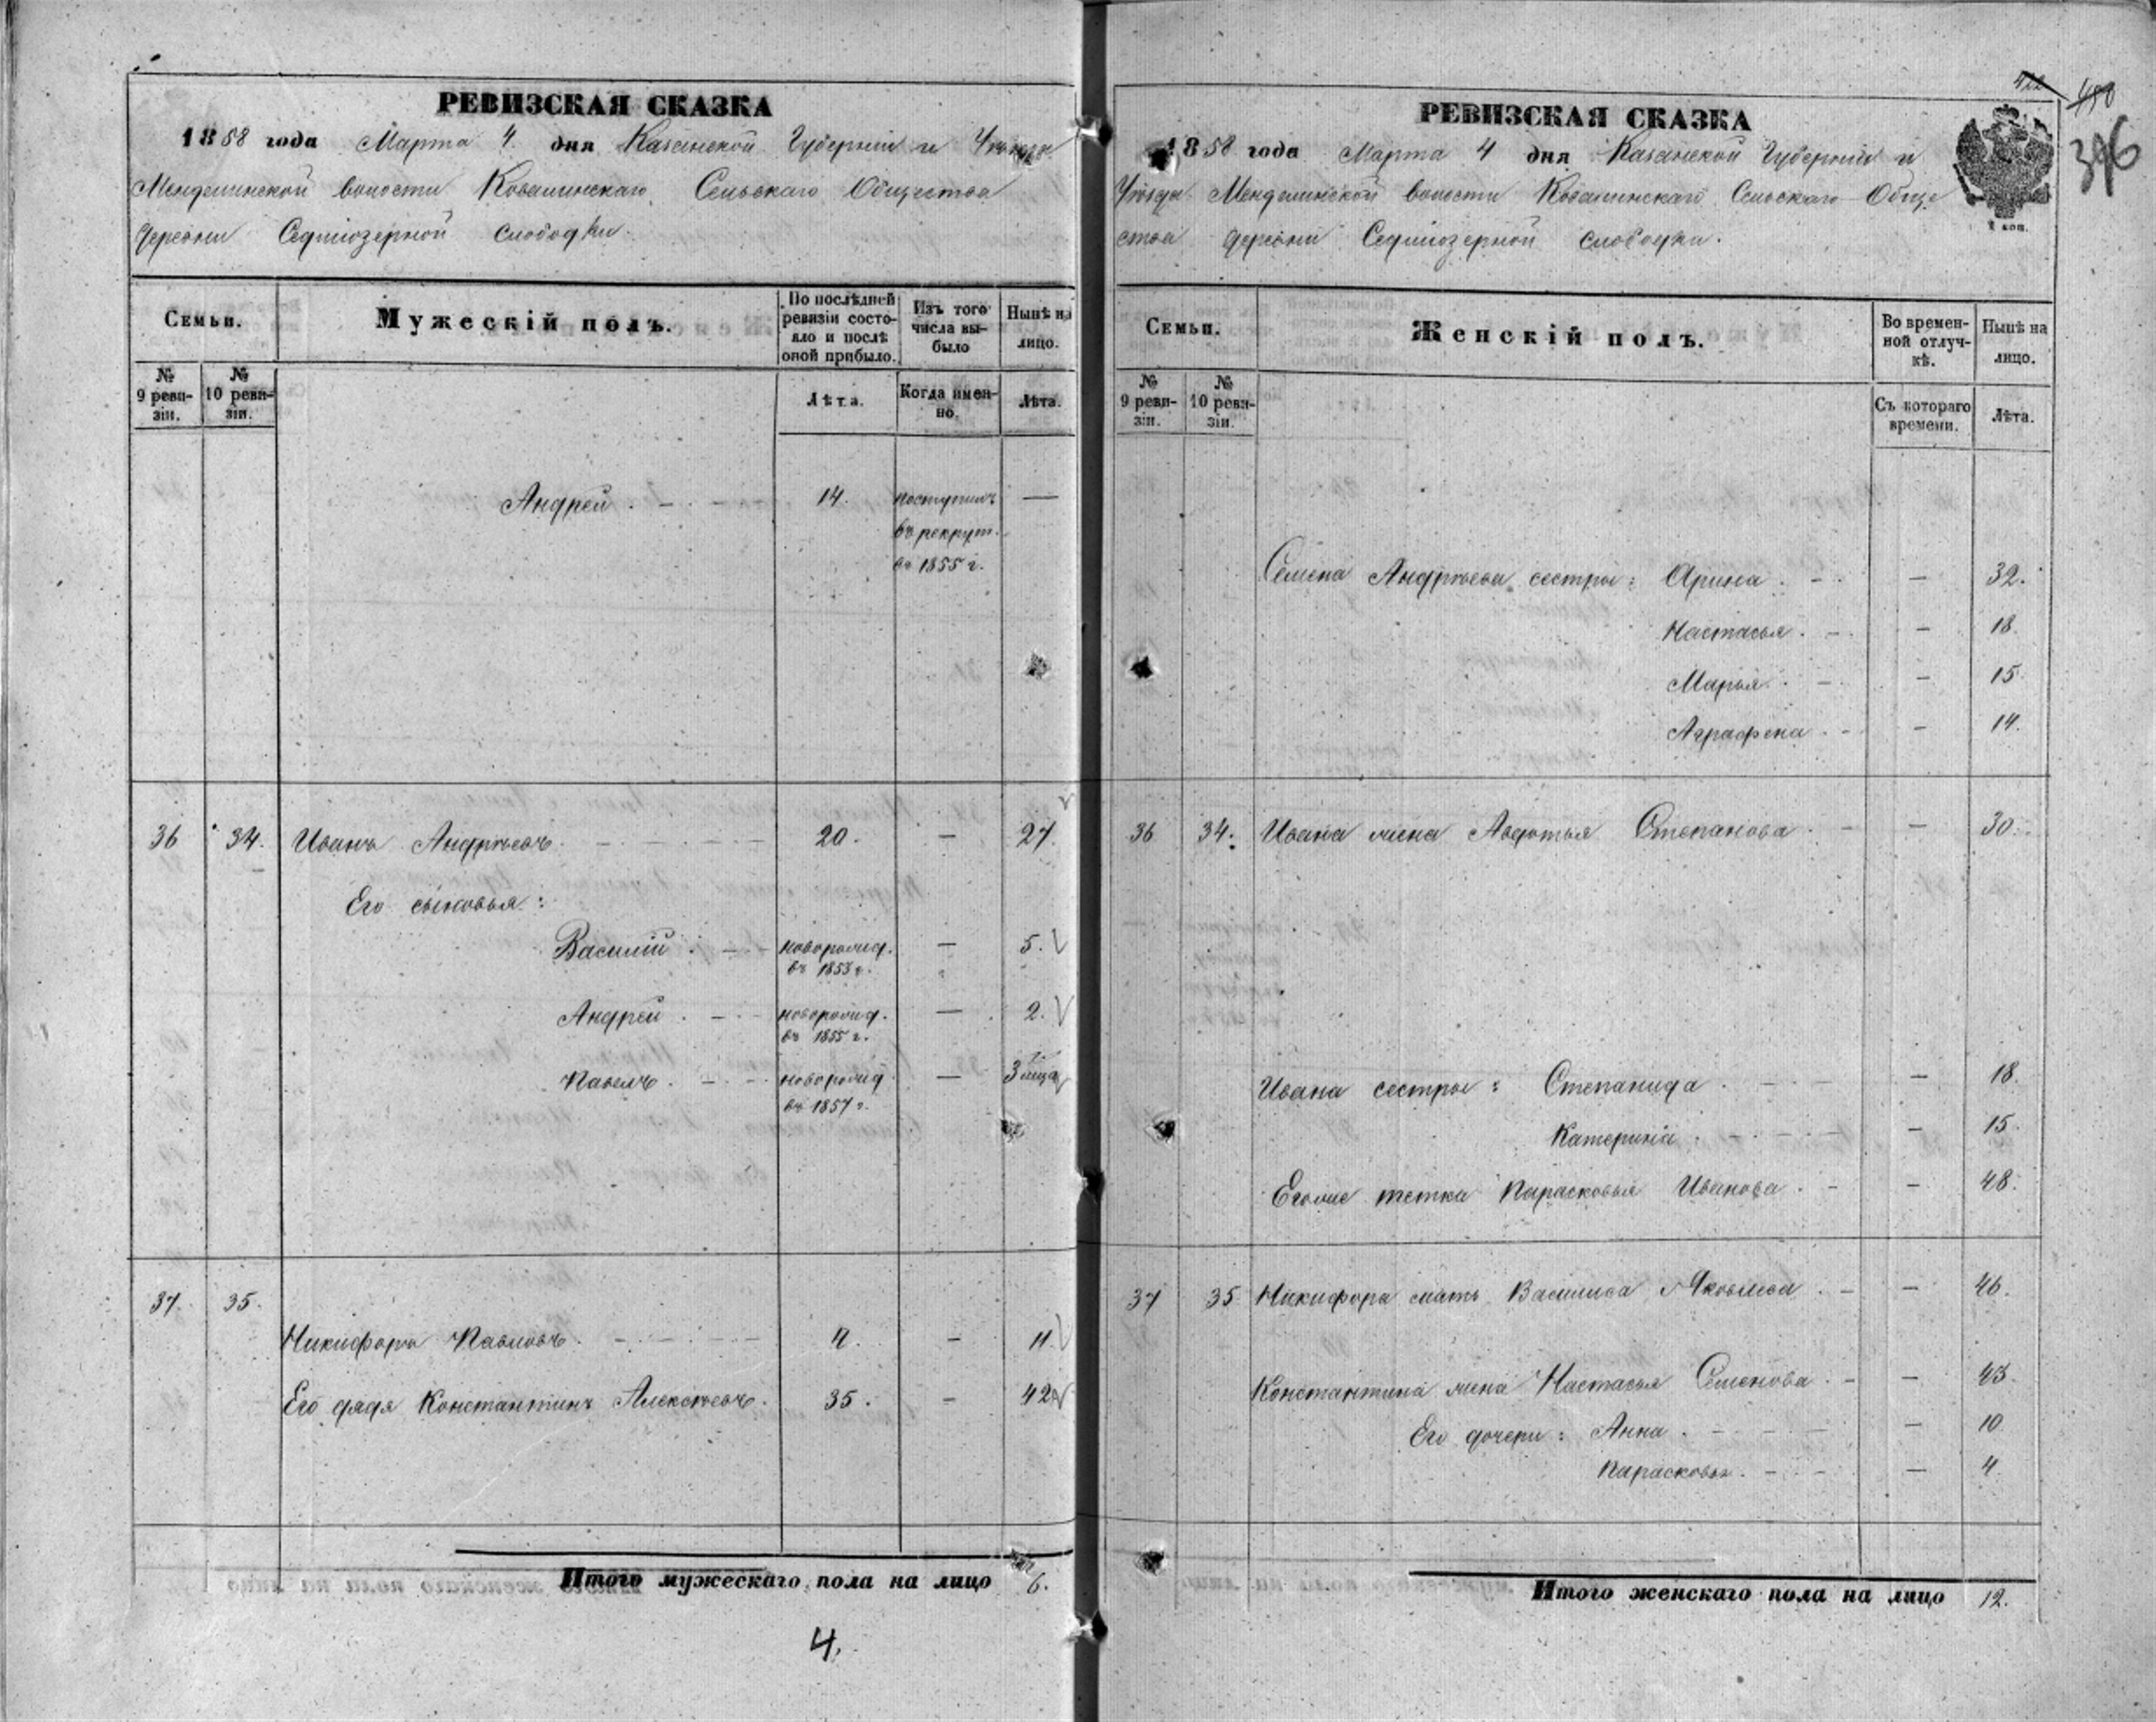 РЕВИЗСКАЯ СКАЗКА
1858 года Марта 4 дня Казанской Губерніи и Уѣзда
Менделинской волости Ковалинскаго Сельскаго Общества
деревни Седміозерной слободки.
Семьи.
Мужескій полъ.
По послѣдней ревизіи состояло и послѣ оной прибыло.
Изъ того числа выбыло
Нынѣ на лицо.
№ 9 ревизіи.
№ 10 ревизіи.
Лѣта.
Когда именно.
Лѣта.
Андрей . 14. поступилъ —
въ рекрут.
въ 1855 г.
36 34. Иванъ Андрѣевъ. 20. — 27.
Его сыновья:
Василій . новорожд. — 5.
въ 1853 г.
Андрей . новорожд. — 2.
въ 1855 г.
Павелъ . новорожд — 3 мца
въ 1857 г.
37. 35.
Никифоръ Павловъ. 4. — 11.
Его дядя Константинъ Алексѣевъ. 35. — 42
Итого мужескаго пола на лицо 6.
4.
422
396
РЕВИЗСКАЯ СКАЗКА
1858 года Марта 4 дня Казанской Губерніи и
Уѣзда Менделинской волости Ковалинскаго Сельскаго Обще
ства деревни Седміозерной слободки.
Семьи.
Женскій полъ.
Во временной отлучкѣ.
Нынѣ на лицо.
№ 9 ревизіи.
№ 10 ревизіи.
Съ котораго времени.
Лѣта.
Семена Андрѣева сестры: Арина . — 32.
Настасья . — 18.
Марья . — 15
Аграфена . — 14.
36 34. Ивана жена Авдотья Степанова . — 30.
Ивана сестры: Степанида . — 18.
Катерина . — 15.
Егоже тетка Парасковья Иванова . — 48.
37 35 Никифора мать Василиса Яковлева . — 46.
Константина жена Настасья Семенова . — 43.
Его дочери: Анна . — 10
Парасковья . — 4
Итого женскаго пола на лицо 12.